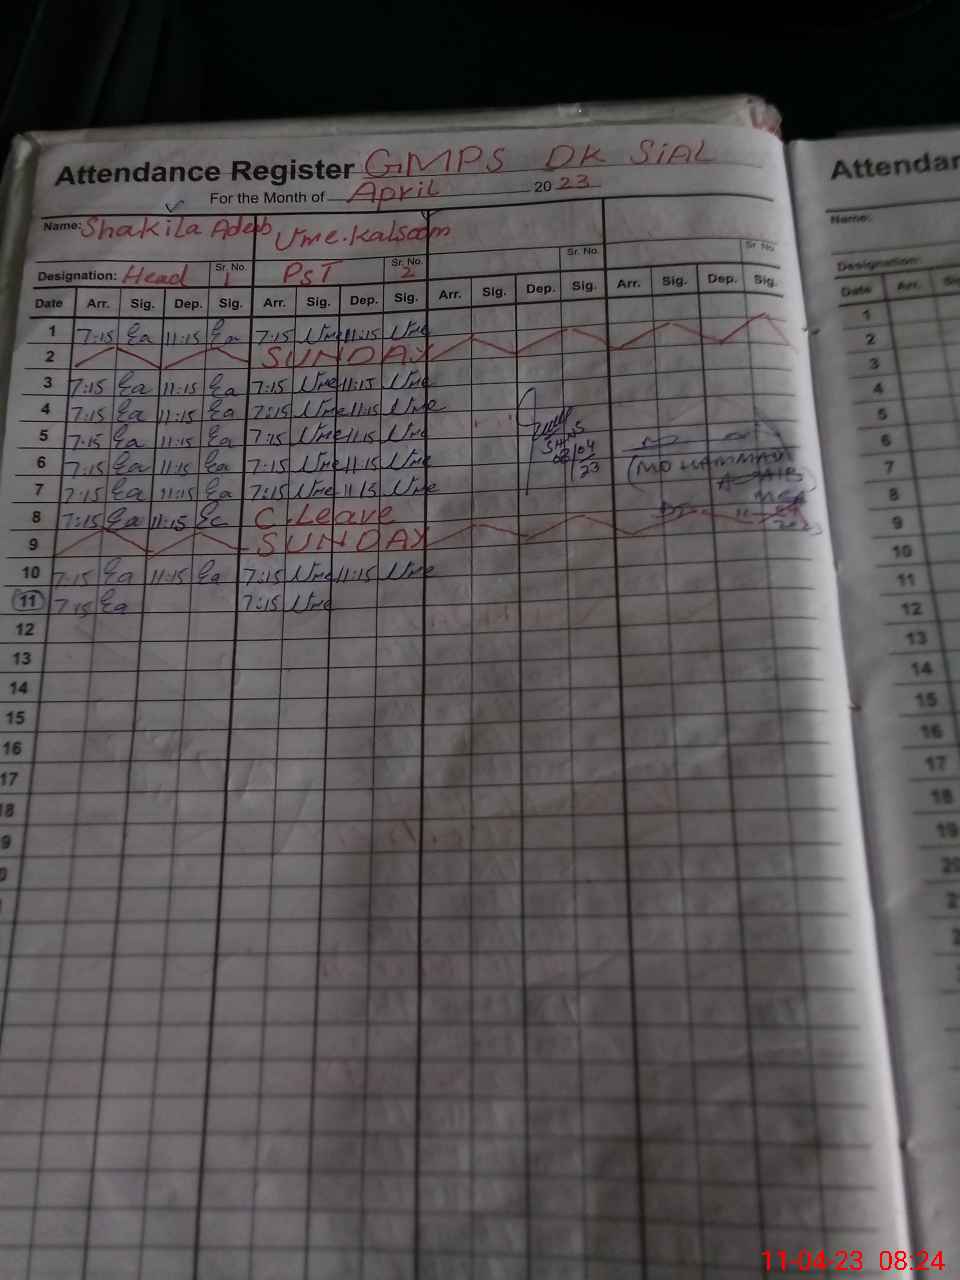 Attendance Register GMPS DK SiAL
For the Month of April 2023
Name: Shakila Adeeb Ume.Kalsoom
Designation: Head Sr. No. 1 PST Sr. No. 2 Sr. No. Sr. No.
Date Arr. Sig. Dep. Sig. Arr. Sig. Dep. Sig. Arr. Sig. Dep. Sig. Arr. Sig. Dep. Sig.
1 7:15 11:15 7:15 Ume 11:15 Ume
2 SUNDAY
3 7:15 11:15 7:15 Ume 11:15 Ume
4 7:15 11:15 7:15 Ume 11:15 Ume
5 7:15 11:15 7:15 Ume 11:15 Ume
6 7:15 11:15 7:15 Ume 11:15 Ume
7 7:15 11:15 7:15 Ume 11:15 Ume
8 7:15 11:15 C.Leave
9 SUNDAY
10 7:15 11:15 7:15 Ume 11:15 Ume
11 7:15 7:15 Ume
12
13
14
15
16
17
18
08/04
23
(MOHAMMAD
MEA
Attendar
Name:
Designation:
Date Arr.
1
2
3
4
5
6
7
8
9
10
11
12
13
14
15
16
17
18
19
20
11-04-23 08:24